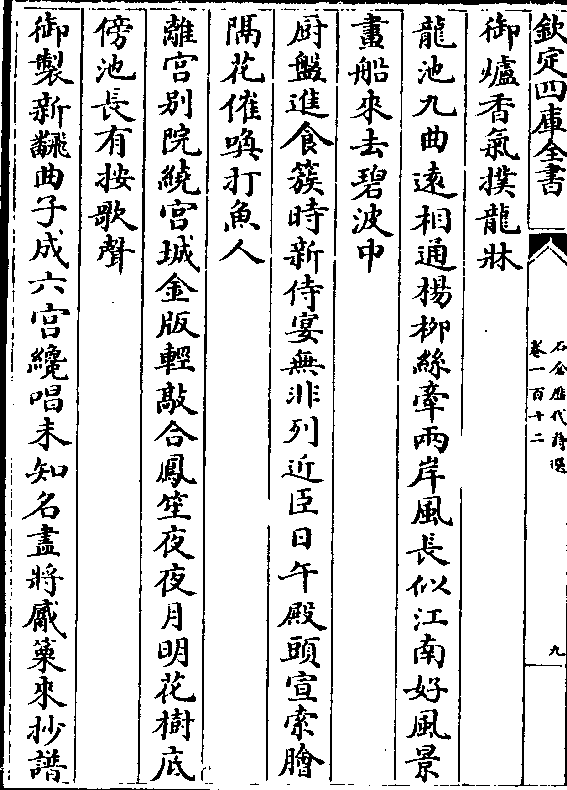 欽定四庫全書
石倉歷代詩選
卷一百十二
九
御爐香氣撲龍牀
龍池九曲遠相通楊柳絲牽兩岸風長似江南好風景
畫船來去碧波中
厨盤進食簇時新侍宴無非列近臣日午殿頭宣索膾
隔花催喚打魚人
離宮别院繞宮城金版輕敲合鳳笙夜夜月明花樹底
傍池長有按歌聲
御製新飜曲子成六宮纔唱未知名盡將觱篥來抄譜